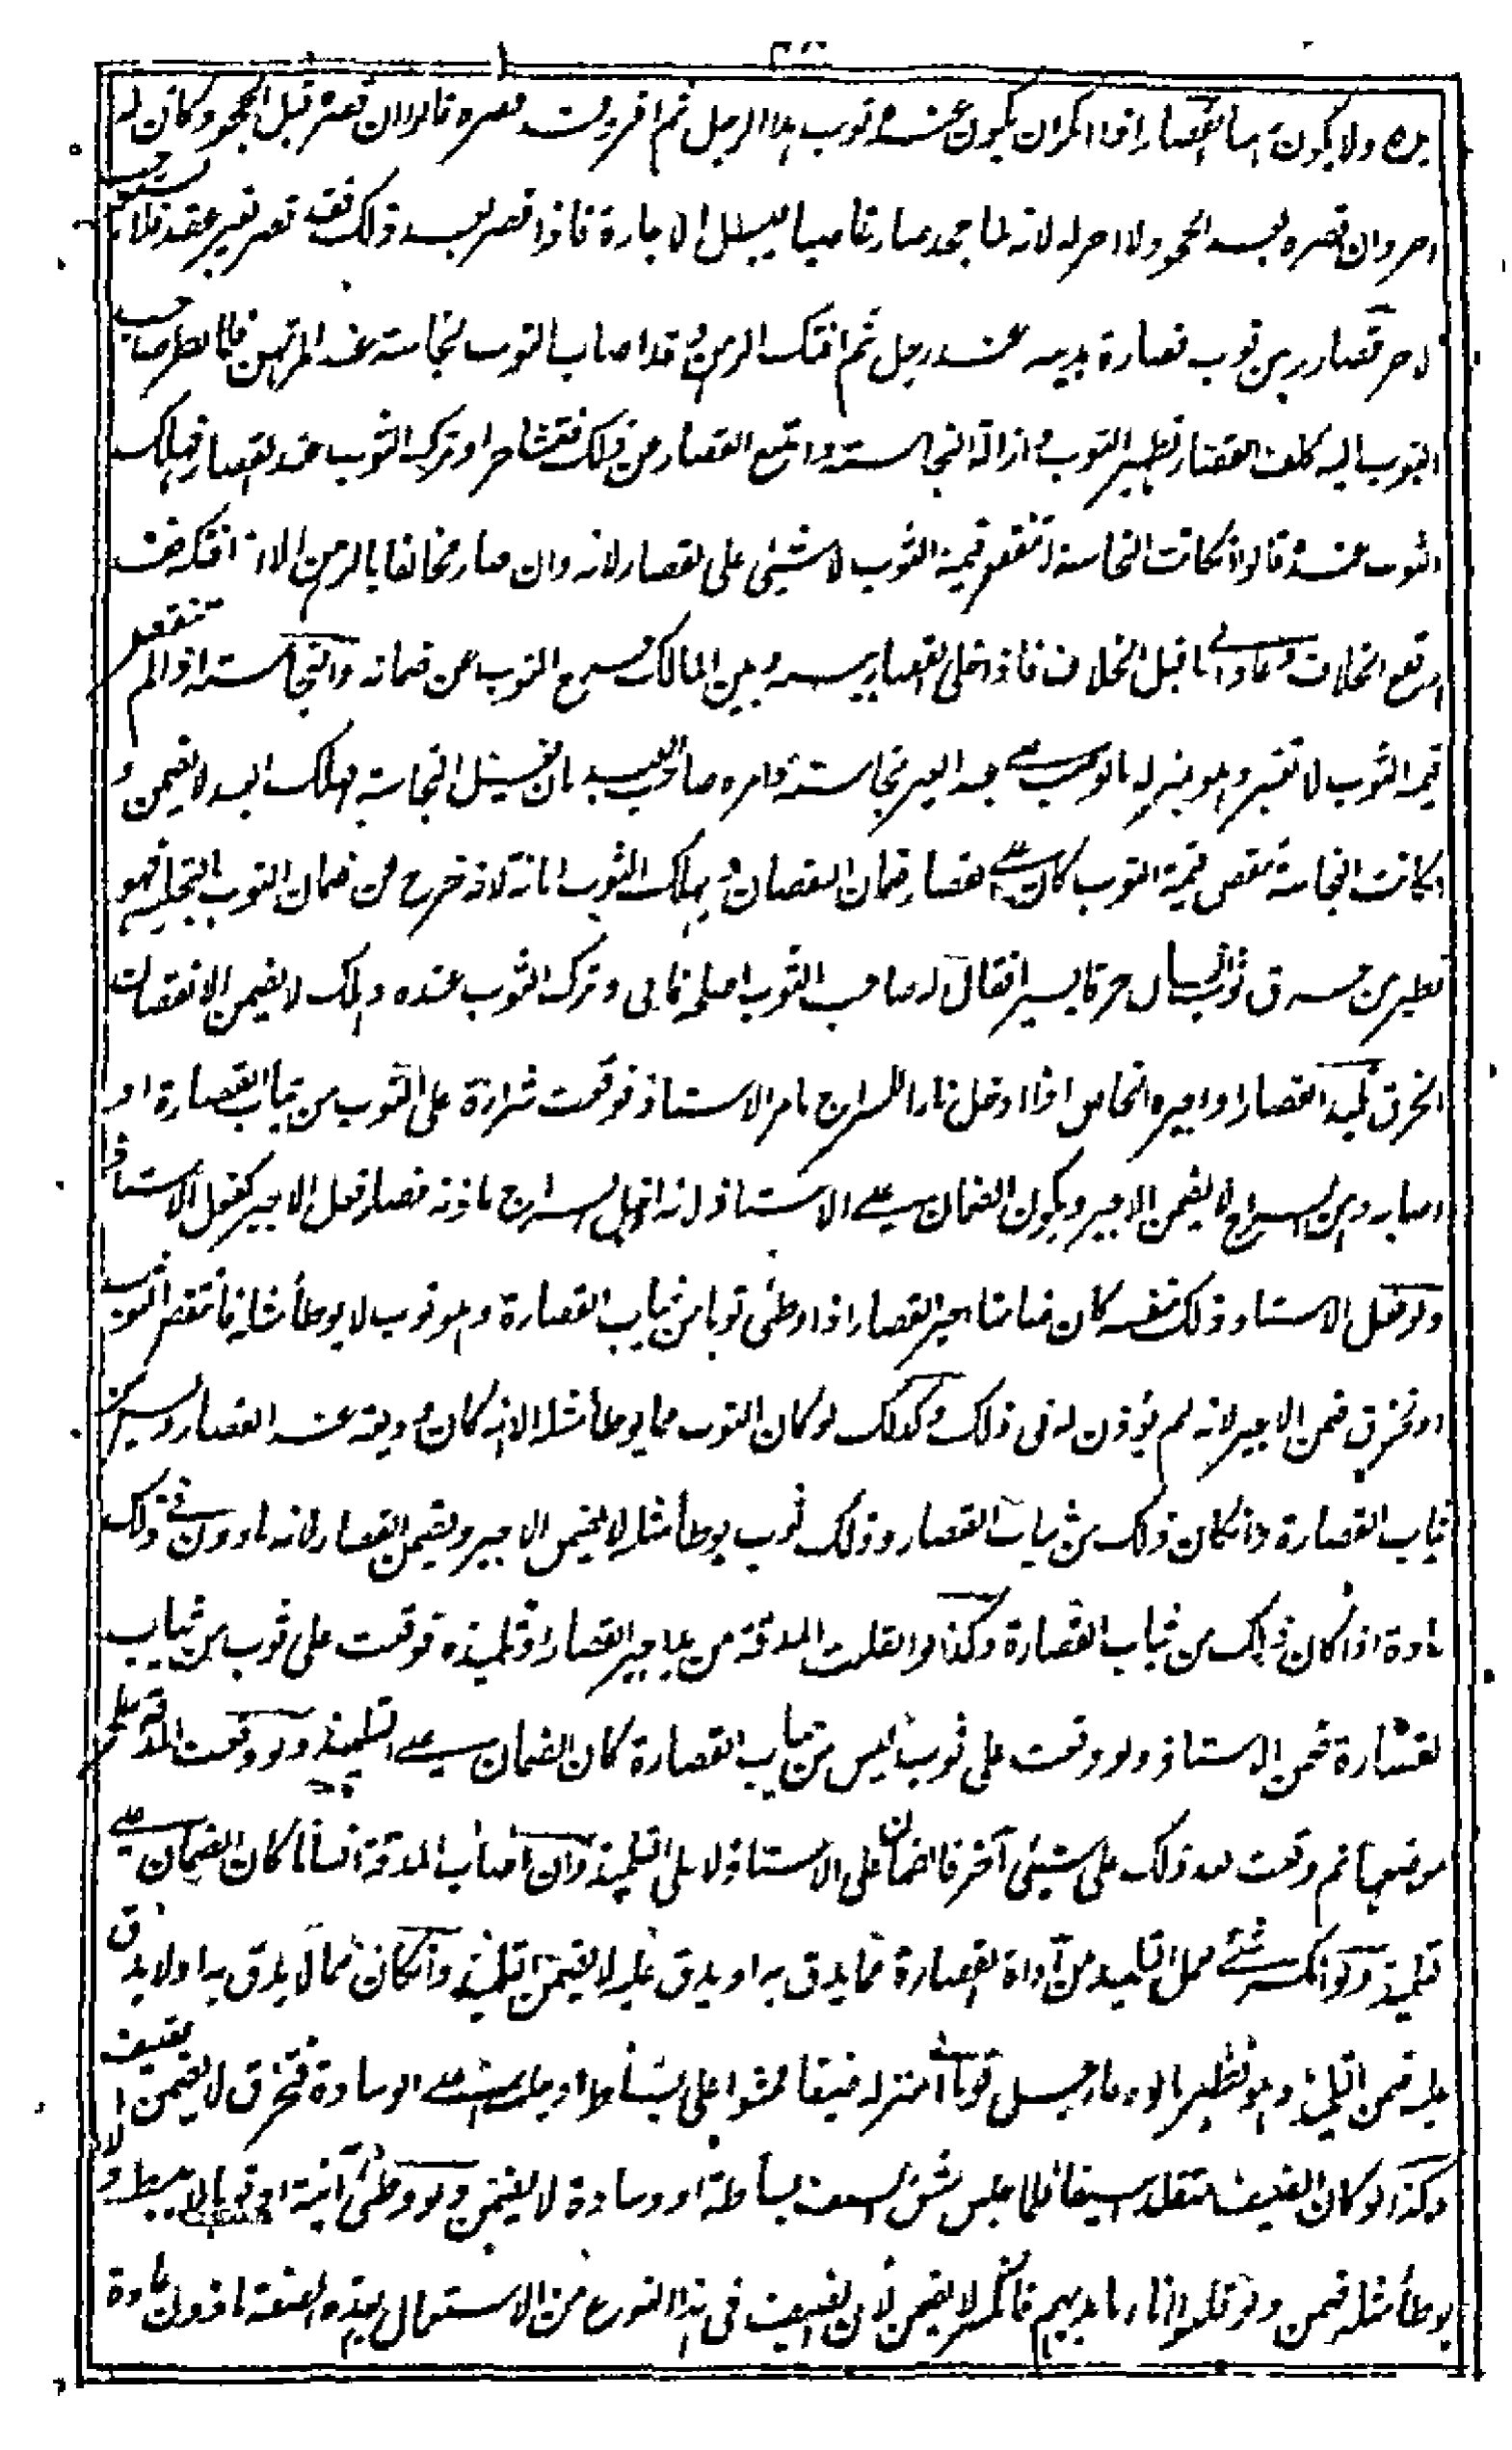 يده ولا يكون رهنا القصار اذا انكر ان يكون عنده ثوب هذا الرجل ثم اقر وقد قصره قالوا ان قصره قبل الجحود كان له
الاجر وان قصره بعد الجحود لا اجر له لانه لما جحد صار غاصبا فيبطل الاجارة فاذا قصر بعد ذلك فقد قصر بغير عقد فلا يستوجب
الاجر قصار رهن ثوب قصارة بدينه عند رجل ثم افتك الرهن وقد اصاب الثوب نجاسة عند المرتهن فلما نظر صاحب
الثوب اليه كلف القصار تطهير الثوب وازالة النجاسة وامتنع القصار من ذلك فتشاجرا وترك الثوب عند القصار فهلك
الثوب عنده قالوا ان كانت النجاسة لا تنقص قيمة الثوب لا شيئ على القصار لانه وان صار مخالفا بالرهن الا انه افتكه فقد
ارتفع الخلاف وعاد الى ما قبل الخلاف فاذا خلى القصار بينه وبين المالك خرج الثوب عن ضمانه والنجاسة اذا لم تنقص
قيمة الثوب لا تعتبر وهو بمنزلة ما لو عبد الغير نجاسة وامره صاحب العبد بان يغسل النجاسة فهلك العبد لا يضمن و
ان كانت النجاسة تنقص قيمة الثوب كان على القصار ضمان النقصان ويهلك الثوب امانة لانه خرج من ضمان الثوب بالتخلية فهو
نظير من خرق ثوب انسان خرقا يسيرا فقال له صاحب الثوب اصلحه فابى وترك الثوب عنده وهلك لا يضمن الا نقصان
الخرق تلميذ القصار او اجيره الخاص اذا ادخل نارا للسراج بامر الاستاذ فوقعت شرارة على الثوب من ثياب القصارة او
اصابه دهن السراج لا يضمن الاجير ويكون الضمان على الاستاذ لانه ادخل السراج باذنه فصار فعل الاجير كفعل الاستاذ
ولو فعل الاستاذ ذلك بنفسه كان ضامنا اجير القصار اذا وطئ ثوبا من ثياب القصارة وهو ثوب لا يوطأ مثله فانتقص الثوب
او تخرق ضمن الاجير لانه لم يؤذن له في ذلك وكذلك لو كان الثوب مما يوطأ مثله الا انه كان وديعة عند القصار وليس من
ثياب القصارة وان كان ذلك من ثياب القصار وذلك ثوب يوطأ مثله لا يضمن الاجير ويضمن القصار لانه ماذون في ذلك
عادة اذا كان ذلك من ثياب القصارة وكذا لو انفلت المدقة من يد اجير القصار او تلميذه فوقعت على ثوب من ثياب
القصارة ضمن الاستاذ ولو وقعت على ثوب ليس من ثياب القصارة كان الضمان على التلميذ ولو وقعت المدقة على
موضعها ثم وقعت بعد ذلك على شيئ آخر فالضمان على الاستاذ لا على التلميذ وان اصاب المدقة انسانا كان الضمان على
تلميذ ولو انكسر شئ بعمل التلميذ من آداة القصارة مما يدق به او يدق عليه لا يضمن التلميذ وان كان مما لا يدق به او لا يدق
عليه ضمن التلميذ وهو نظير ما لو دعا رجل قوما الى منزله ضيفا فمشوا على بساط او جلسوا على الوسادة فتخرق لا يضمن الضيف
وكذا لو كان الضيف متقلدا سيفا فلما جلس شق السيف بساطه او وسادة لا يضمن ولو وطئ آنية او ثوبا لا يبسط ولا
يوطأ مثله ضمن ولو قلبوا اناء بايديهم فانكسر لا يضمن لان الضيف في هذا النوع من الاستعمال بهذه الصفة ماذون عادة